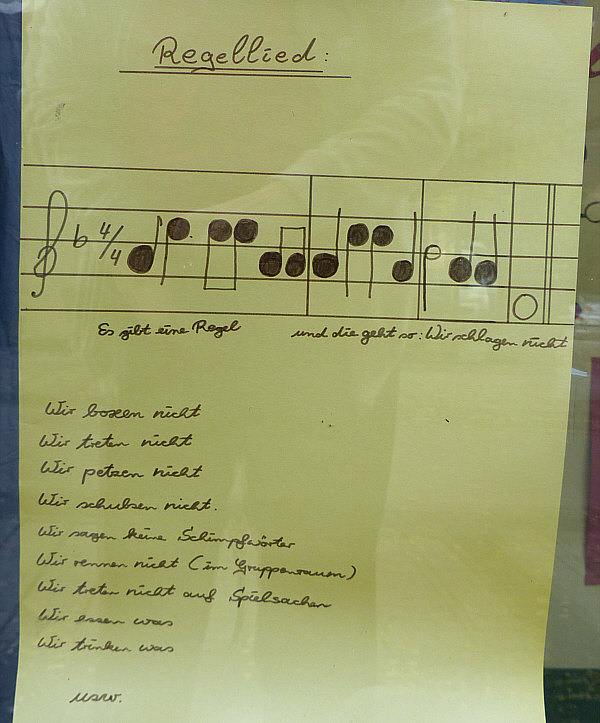 Regellied:
4/4
Es gibt eine Regel und die geht so: Wir schlagen nicht
Wir boxen nicht
Wir treten nicht
Wir petzen nicht
Wir schubsen nicht.
Wir sagen keine Schimpfwörter
Wir rennen nicht (im Gruppenraum)
Wir treten nicht auf Spielsachen
Wir essen was
Wir trinken was
usw.